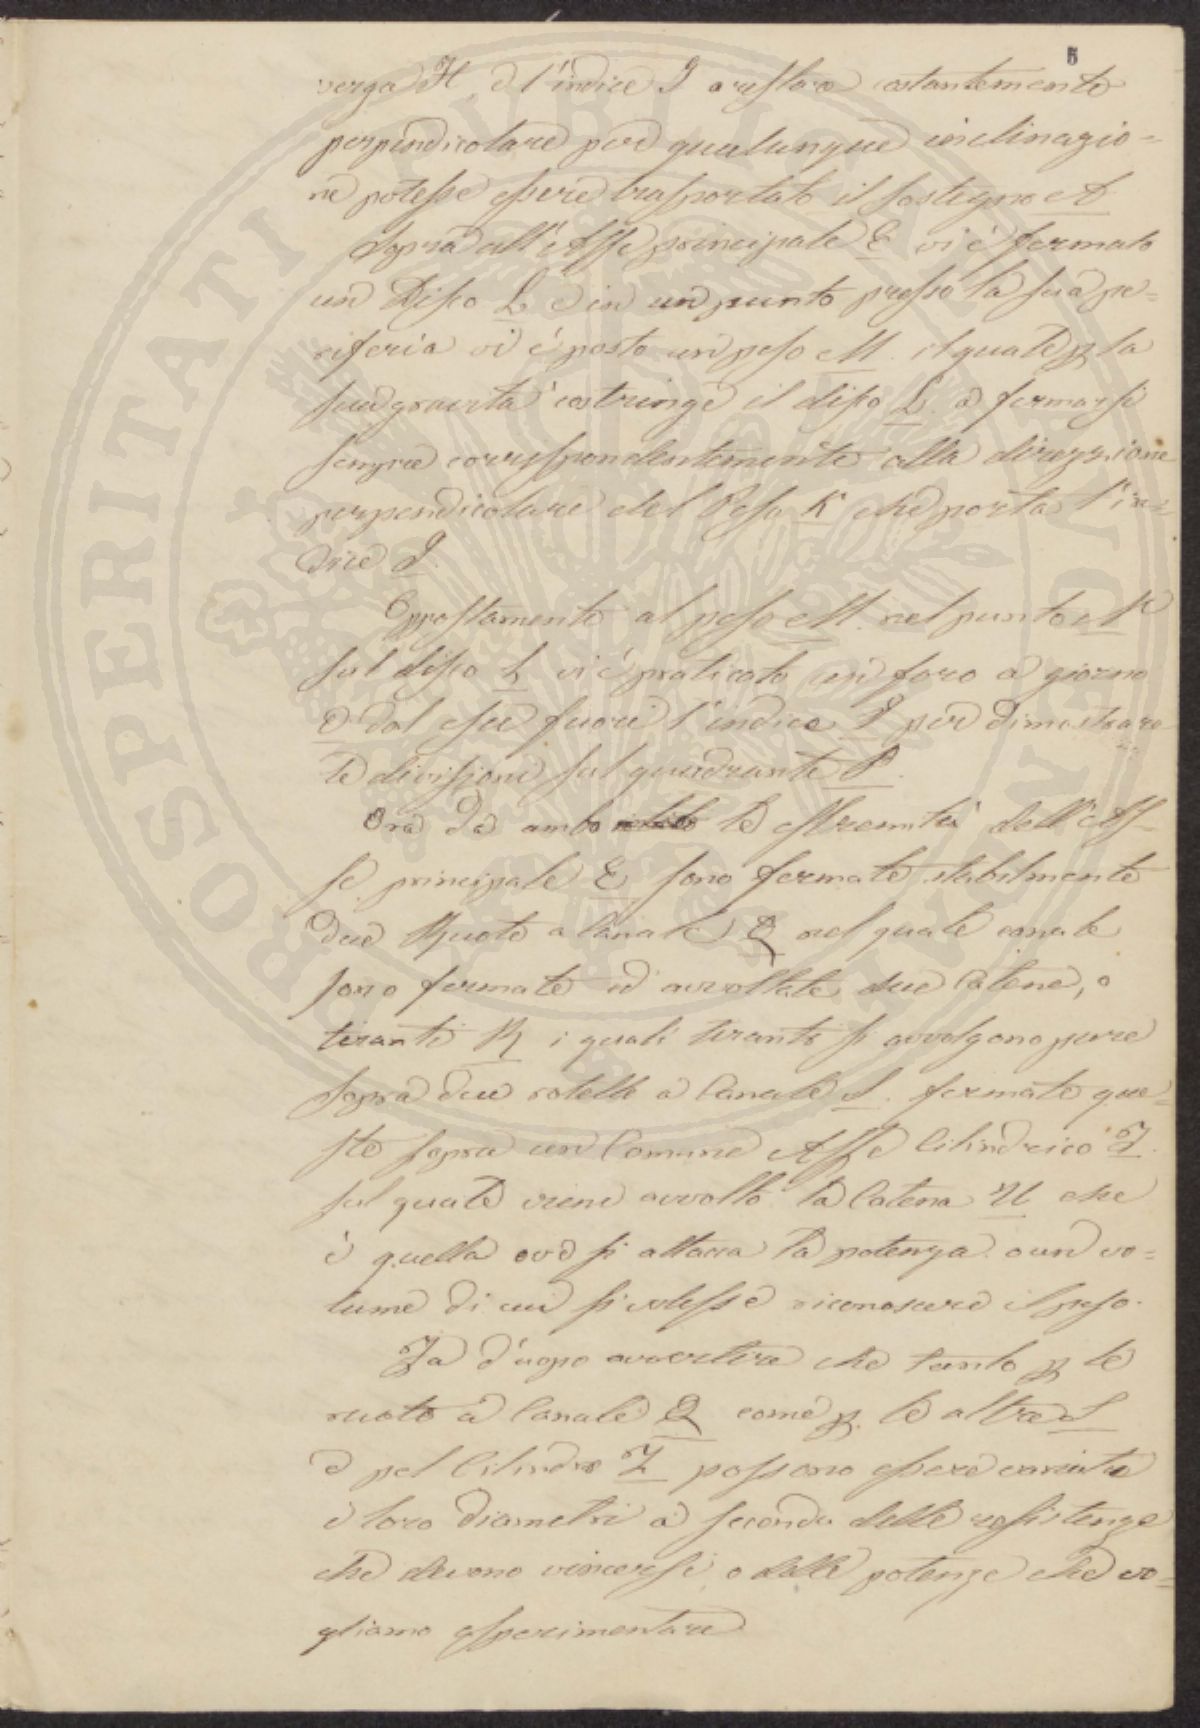 5
verga H, e l'indice I a restare costantemente
perpendicolare per qualunque inclinazio=
ne potesse essere trasportato il sostegno A
Sopra all'Asse principale E vi è fermato
un Disco L e in un punto presso la sua pe=
riferia vi è posto un peso M. il quale p la
sua gravità costringe il disco L. a fermarsi
sempre corrispondentemente alla direzzione
perpendicolare del Peso K che porta l'in=
dice I.
Oppostamente al peso M. nel punto N
sul disco L vi è praticato un foro a giorno
e dal esce fuori l'indice I per dimostrare
le divisioni sul quadrante P.
Ora da ambo le estremità dell'As=
se principale E sono fermate stabilmente
due Ruote a Canale Q nel quale canale
sono fermate ed avvoltate due Catene, o
tiranti R i quali tiranti si avvolgono pure
sopra due rotelle a Canale S. fermate que=
ste sopra un Comune Asse Cilindrico T.
sul quale viene avvolto la Catena U che
è quella ove si attacca la potenza o un vo=
lume di cui si volesse riconoscere il peso.
Fa d'uopo avvertire che tanto p le
ruote a Canale Q come p. le altre S
e pel Cilindro T possono essere variati
i loro diametri a seconda delle resistenze
che devono vincersi, o delle potenze che vo=
gliamo esperimentare
PROSPERITATI PUBLICAE